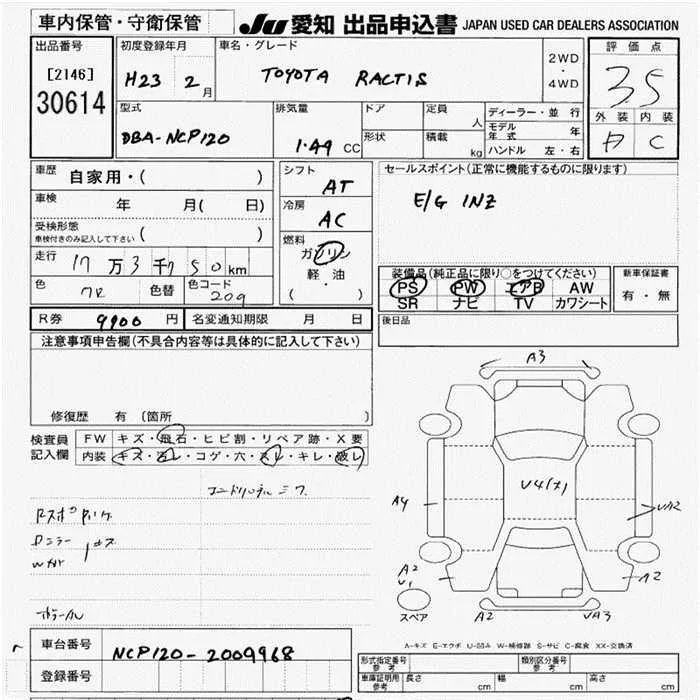 車内保管・守衛保管
JU 愛知 出品申込書 JAPAN USED CAR DEALERS ASSOCIATION
出品番号
[2146]
30614
初度登録年月
H23 2月
車名・グレード
TOYOTA RACTIS
2WD
・
4WD
評価点
3.5
外装 内装
C
型式
DBA-NCP120
排気量
1.49 CC
ドア
形状
定員
人
積載
kg
ディーラー・並行
モデル年式 年
ハンドル 左・右
車歴 自家用・( )
車検 年 月( 日)
受検形態
車検付きのみ記入して下さい ( )
走行 17万3千750km
色
色替
色コード
209
シフト
AT
冷房
AC
燃料
ガソリン
軽・油
( )
セールスポイント(正常に機能するものに限ります)
E/G 1NZ
装備品(純正品に限り○をつけてください)
PS PW エアB AW
SR ナビ TV カワシート
新車保証書
有・無
R券 9900円 名変通知期限 月 日
後日品
注意事項申告欄(不具合内容等は具体的に記入して下さい)
修復歴 有 (箇所 )
検査員
記入欄
FW キズ・飛石・ヒビ割・リペア跡・X要
内装 キズ・汚レ・コゲ・穴・スレ・キレ・破レ
A3
A4
A2
A2
A2
スペア
A-キズ E-エクボ U-凹み W-補修跡 S-サビ C-腐食 XX-交換済
車台番号 NCP120-2009968
登録番号
形式指定番号
参考
類別区分番号
参考
車庫証明用
参考
長さ cm 幅 cm 高さ cm